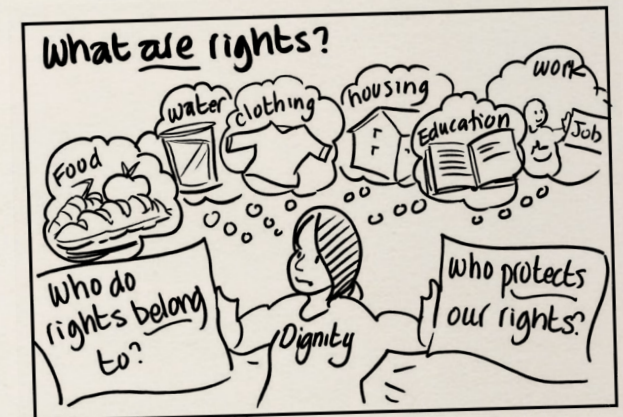 What are rights?
Food
water
clothing
housing
Education
work
Job
Who do
rights belong
to?
Dignity
Who protects
our rights?